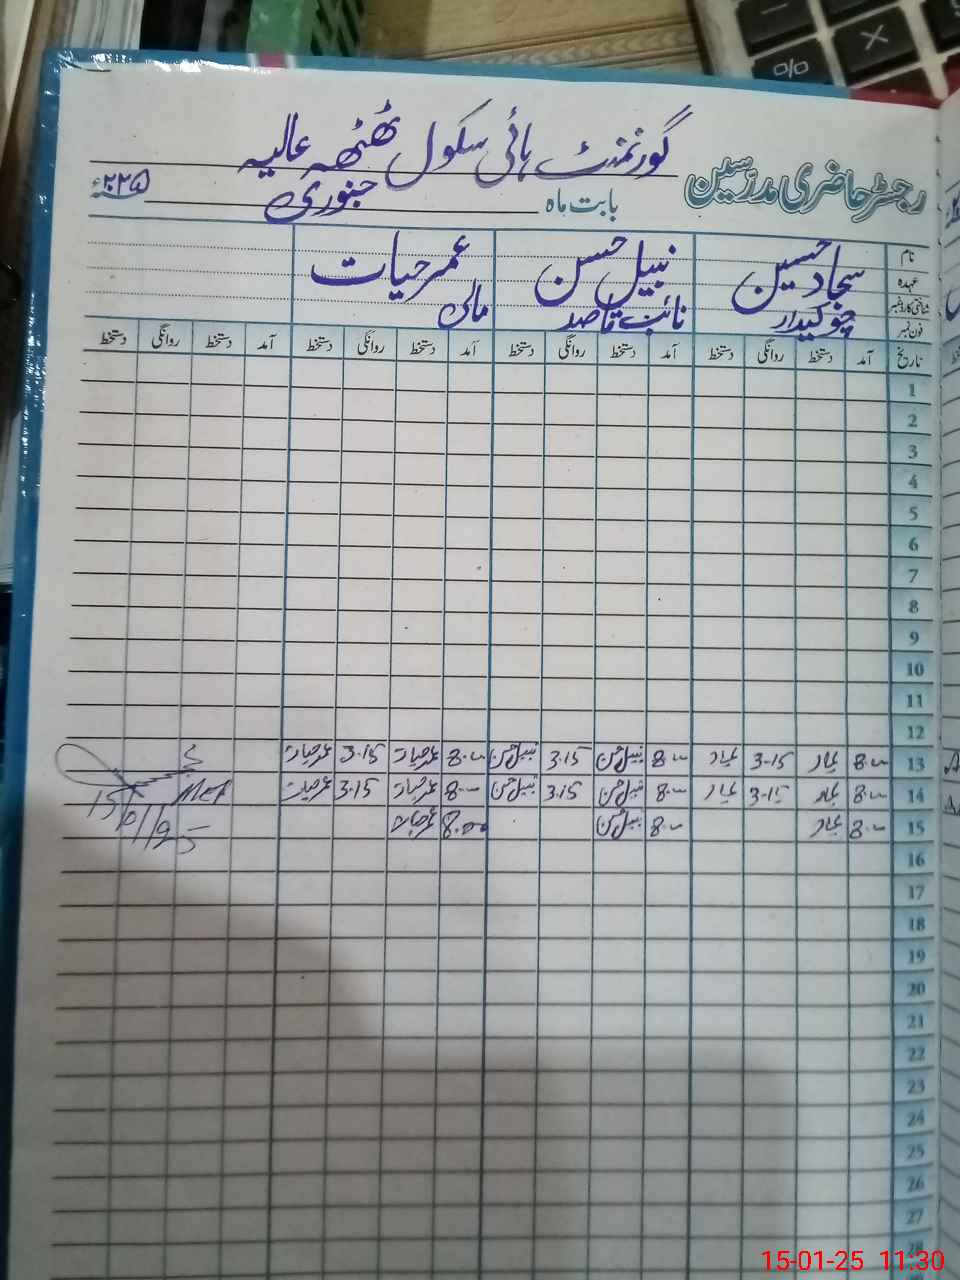 رجسٹر حاضری مدرسین گورنمنٹ ہائی سکول ٹھٹھہ عالیہ
بابت ماہ جنوری ۲۰۲۵ء
نام سجاد حسین نبیل حسن عمر حیات
عہدہ
شناختی کارڈ نمبر چوکیدار نائب قاصد مالی
فون نمبر
تاریخ آمد دستخط روانگی دستخط آمد دستخط روانگی دستخط آمد دستخط روانگی دستخط آمد دستخط روانگی دستخط
1
2
3
4
5
6
7
8
9
10
11
12
13 8.00 3.15 8.00 نبیل حسن 3.15 نبیل حسن 8.00 عمر حیات 3.15 عمر حیات
14 8.00 3.15 8.00 نبیل حسن 3.15 نبیل حسن 8.00 عمر حیات 3.15 عمر حیات
15 8.00 8.00 نبیل حسن 8.00 عمر حیات
15/01/25
16
17
18
19
20
21
22
23
24
25
26
27
28
15-01-25 11:30
%
×
−